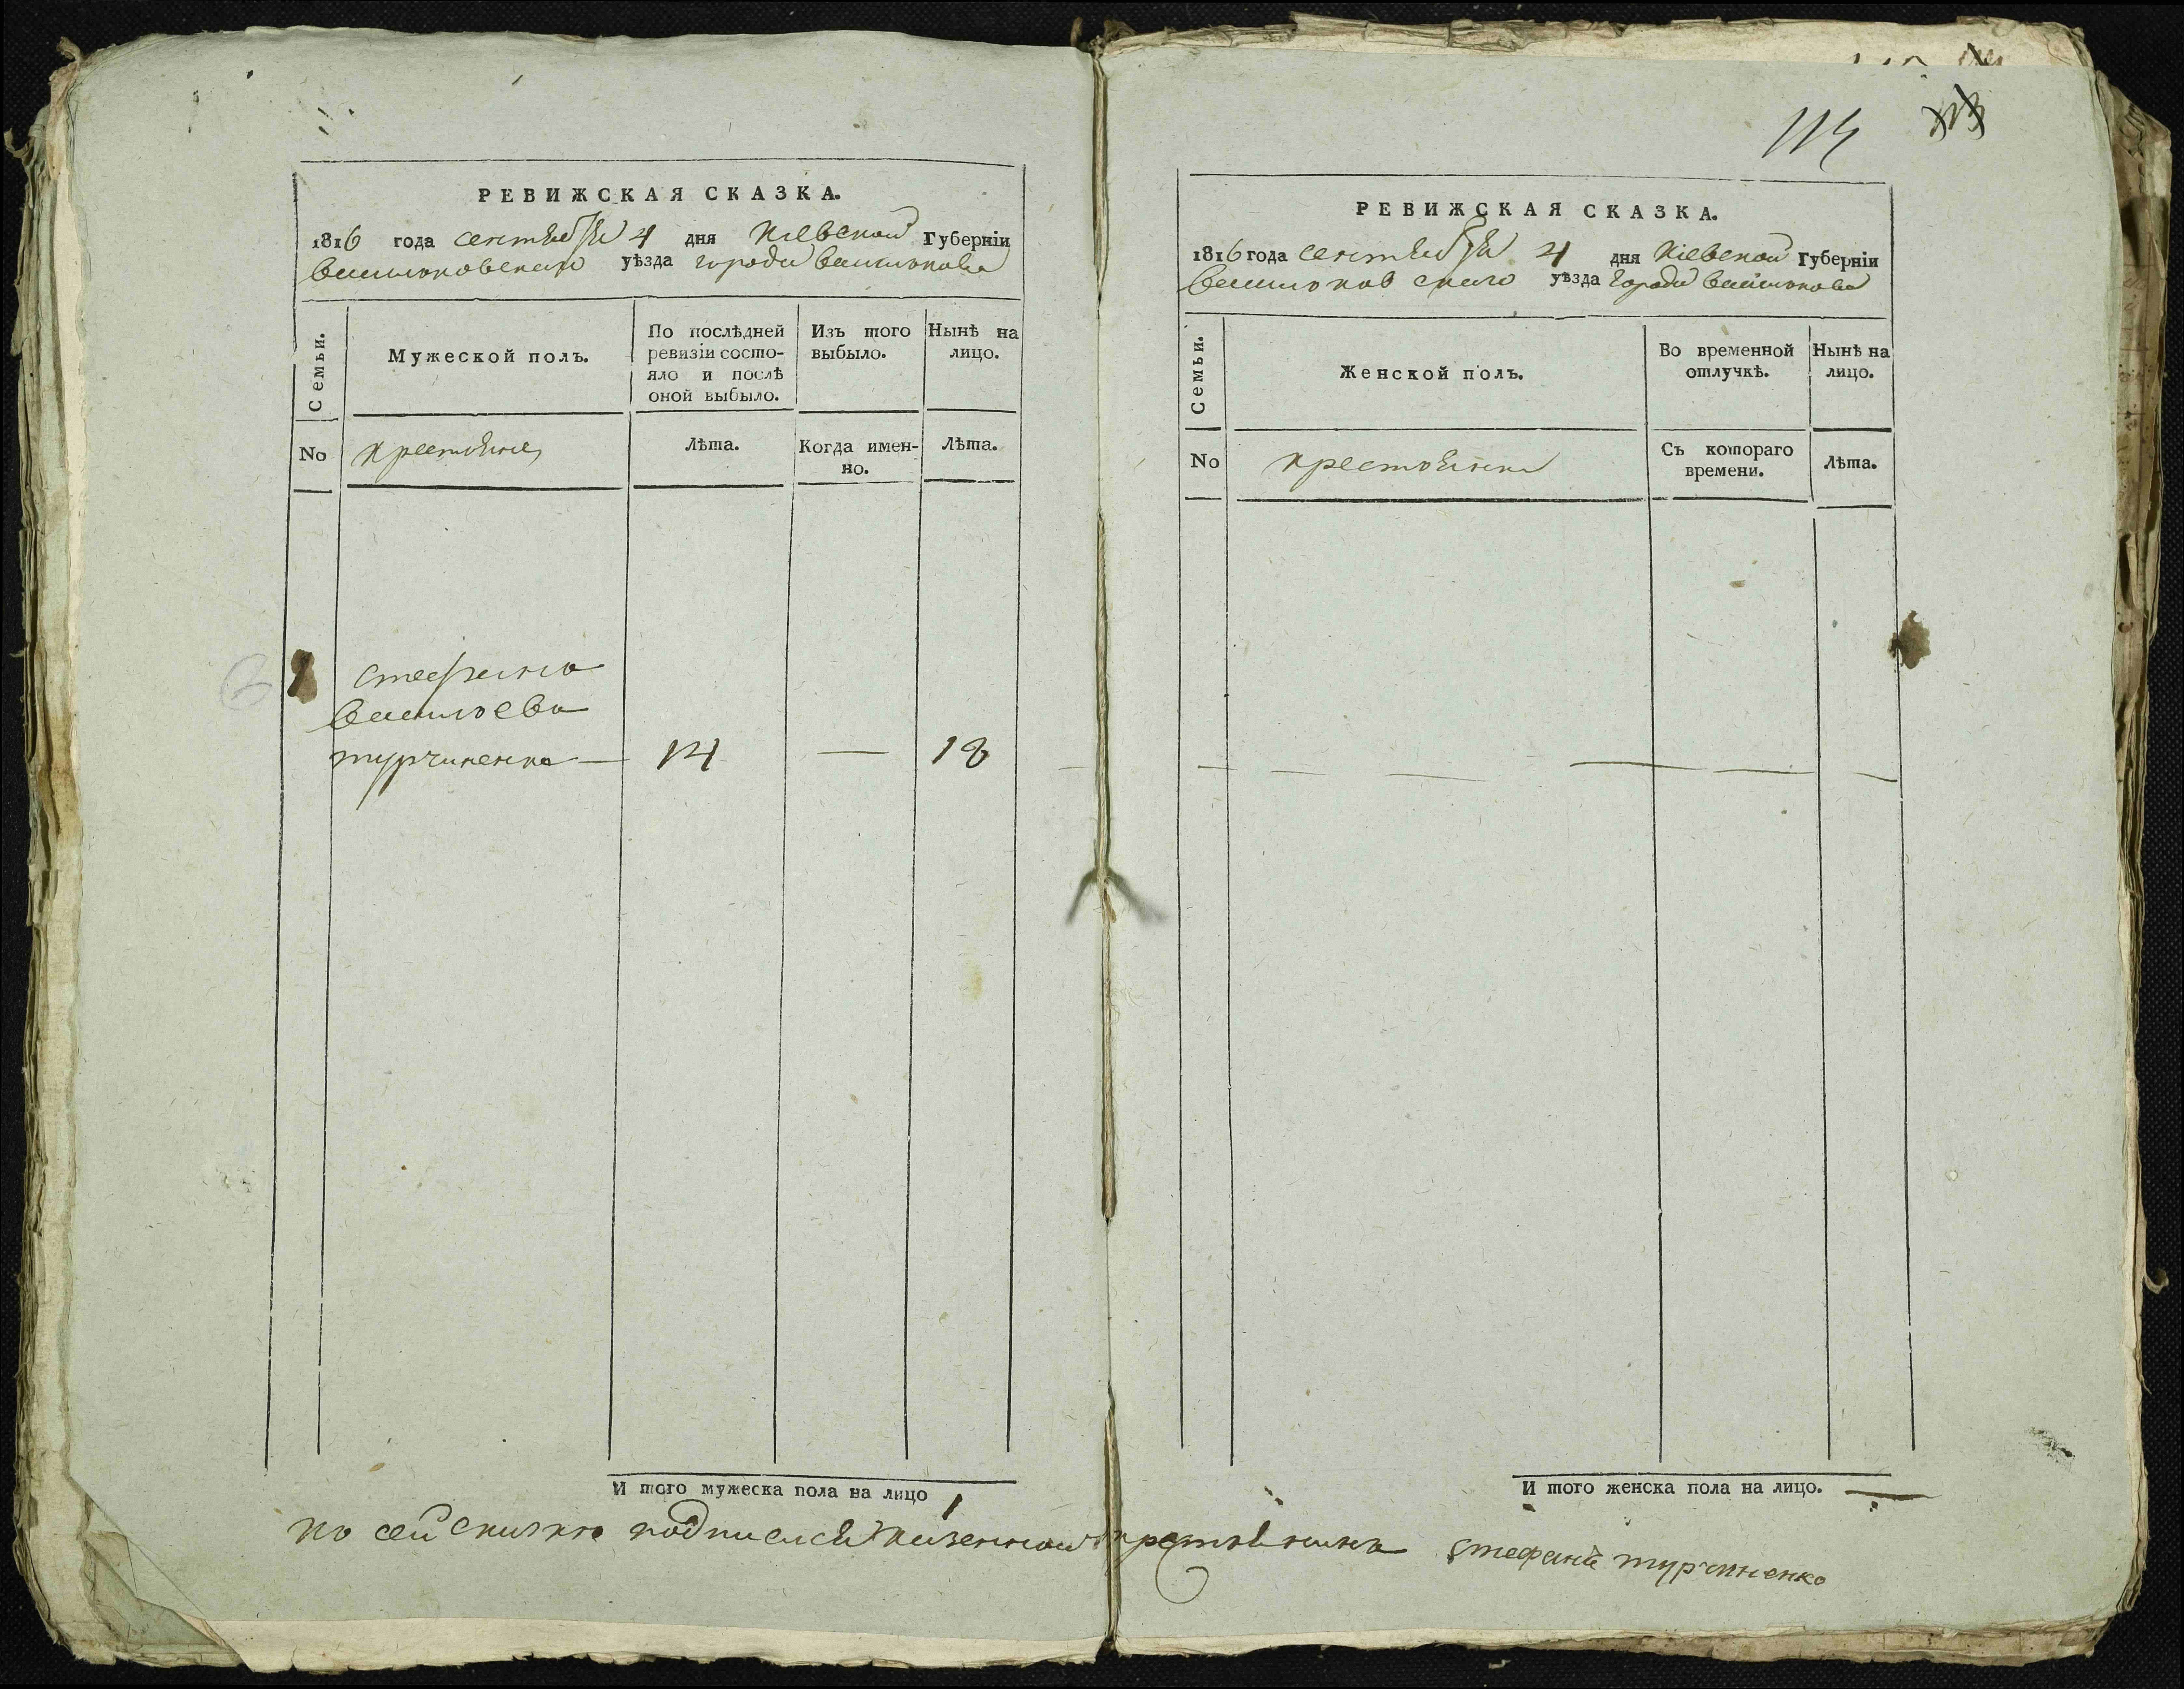 РЕВИЖСКАЯ СКАЗКА.
1816 года сентября 4 дня Киевской Губерніи
васильковскаго уѣзда города василькова
Семьи.
Мужеской полъ.
По послѣдней ревизіи состо-
яло и послѣ оной выбыло.
Изъ того выбыло.
Нынѣ на лицо.
No
крестьяне
Лѣта.
Когда имен-
но.
Лѣта.
стефанъ
васильевъ
турчиненко — 14 — 18
И того мужеска пола на лицо 1
114 113
РЕВИЖСКАЯ СКАЗКА.
1816 года сентября 4 дня Киевской Губерніи
васильковскаго уѣзда города василькова
Семьи.
Женской полъ.
Во временной отлучкѣ.
Нынѣ на лицо.
No
крестьянки
Съ котораго времени.
Лѣта.
И того женска пола на лицо. —
къ сей сказкѣ подписался казенной крестьянинъ стефанъ турчиненко